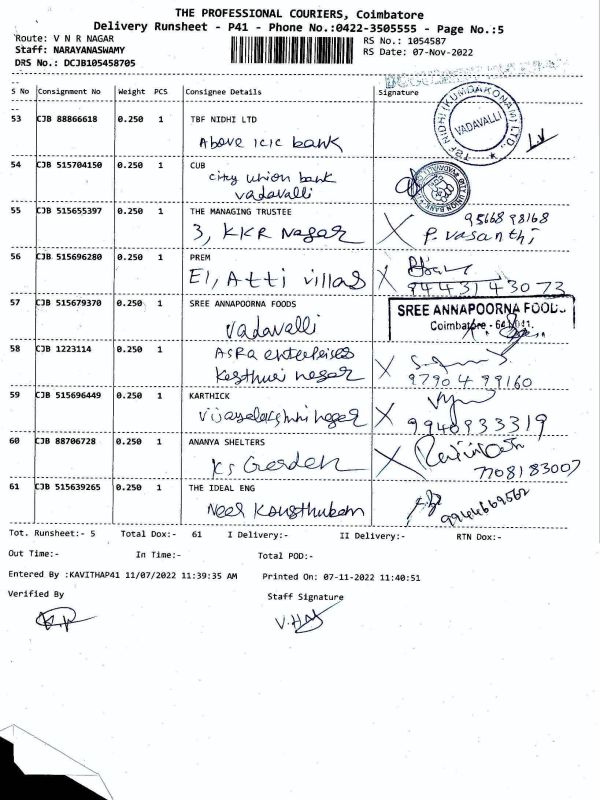 THE PROFESSIONAL COURIERS, Coimbatore
Delivery Runsheet - P41 - Phone No.:0422-3505555 - Page No.:5
Route: V N R NAGAR
RS No.: 1054587
Staff: NARAYANASWAMY
RS Date: 07-Nov-2022
DRS No.: DCJB105458705
S No Consignment No Weight PCS Consignee Details Signature
53 CJB 88866618 0.250 1 TBF NIDHI LTD
Above icic bank
TBF NIDHI (KUMBAKONAM) LTD.,
VADAVALLI
54 CJB 515704150 0.250 1 CUB
city union bank
vadavalli
55 CJB 515655397 0.250 1 THE MANAGING TRUSTEE
3, KKR Nagar
9566898168
P. vasanthi
56 CJB 515696280 0.250 1 PREM
E1, Atti villas
9443143073
57 CJB 515679370 0.250 1 SREE ANNAPOORNA FOODS
vadavalli
SREE ANNAPOORNA FOODS
Coimbatore - 641041.
58 CJB 1223114 0.250 1 ASRA enterprises
Kasthuri nagar
9790499160
59 CJB 515696449 0.250 1 KARTHICK
vijayalakshmi nagar
9940933319
60 CJB 88706728 0.250 1 ANANYA SHELTERS
KS Garden
7708183007
61 CJB 515639265 0.250 1 THE IDEAL ENG
Neer Kousthubam
9944669562
Tot. Runsheet:- 5 Total Dox:- 61 I Delivery:- II Delivery:- RTN Dox:-
Out Time:- In Time:- Total POD:-
Entered By :KAVITHAP41 11/07/2022 11:39:35 AM Printed On: 07-11-2022 11:40:51
Verified By Staff Signature